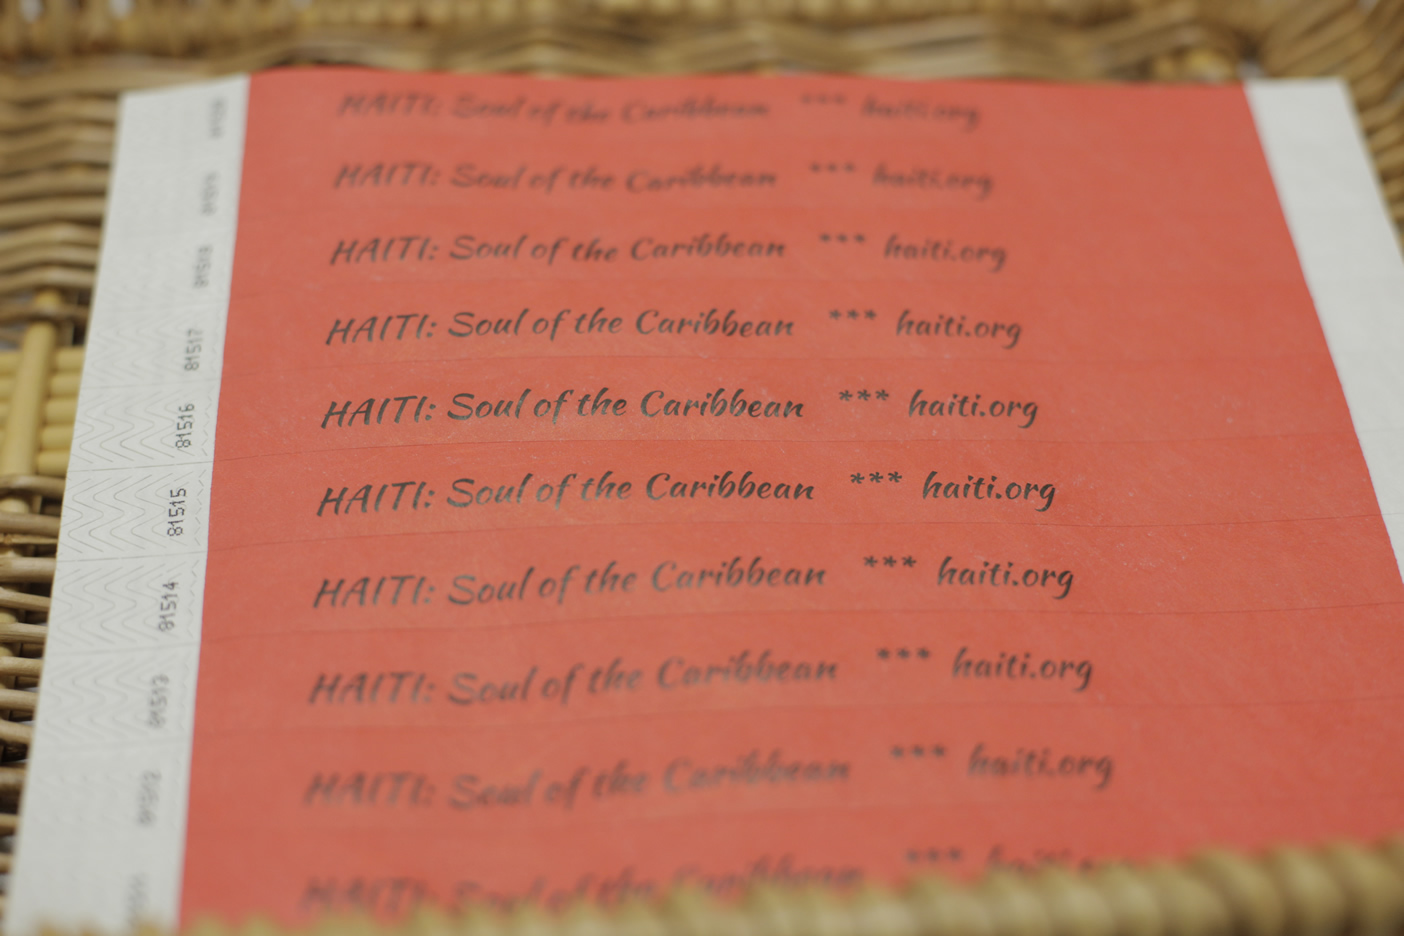 HAITI: Soul of the Caribbean *** haiti.org
HAITI: Soul of the Caribbean *** haiti.org
HAITI: Soul of the Caribbean *** haiti.org
81517 HAITI: Soul of the Caribbean *** haiti.org
81516 HAITI: Soul of the Caribbean *** haiti.org
81515 HAITI: Soul of the Caribbean *** haiti.org
81514 HAITI: Soul of the Caribbean *** haiti.org
81513 HAITI: Soul of the Caribbean *** haiti.org
HAITI: Soul of the Caribbean *** haiti.org
HAITI: Soul of the Caribbean ***